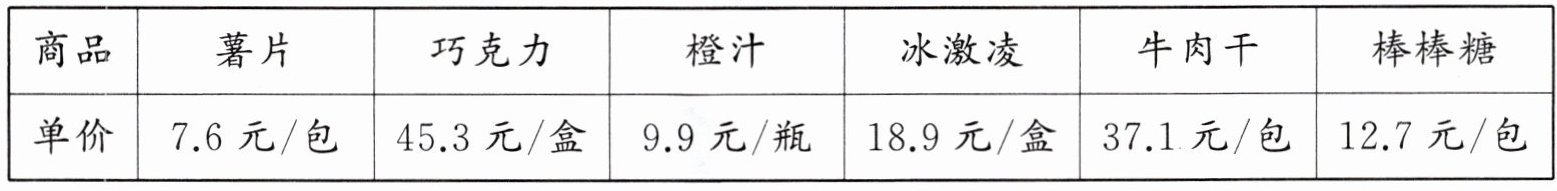 商品 薯片 巧克力 橙汁 冰激凌 牛肉干 棒棒糖
单价 7.6元/包 45.3元/盒 9.9元/瓶 18.9元/盒 37.1元/包 12.7元/包